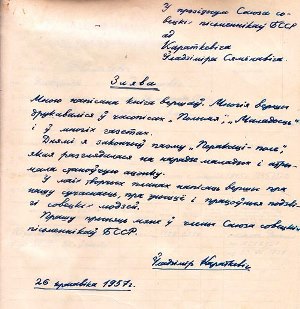 У прэзідыум Саюза со-
вецкіх пісьменнікаў БССР
ад
Караткевіча
Уладзіміра Сямёнавіча.
Заява
Мною напісана кніга вершаў. Многія вершы
друкаваліся ў часопісах „Полымя“, „Маладосць“
і ў многіх газетах.
Днямі я закончыў паэму „
поле“,
якая разглядалася на нарадзе маладых і атры-
мала станоўчую ацэнку.
У маіх творчых планах напісаць вершы пра
нашу сучаснасць, пра
і працоўныя подзві-
гі совецкіх людзей.
Прашу прыняць мяне ў члены Саюза совецкіх
пісьменнікаў БССР.
Уладзімір Караткевіч
26 красавіка 1957 г.